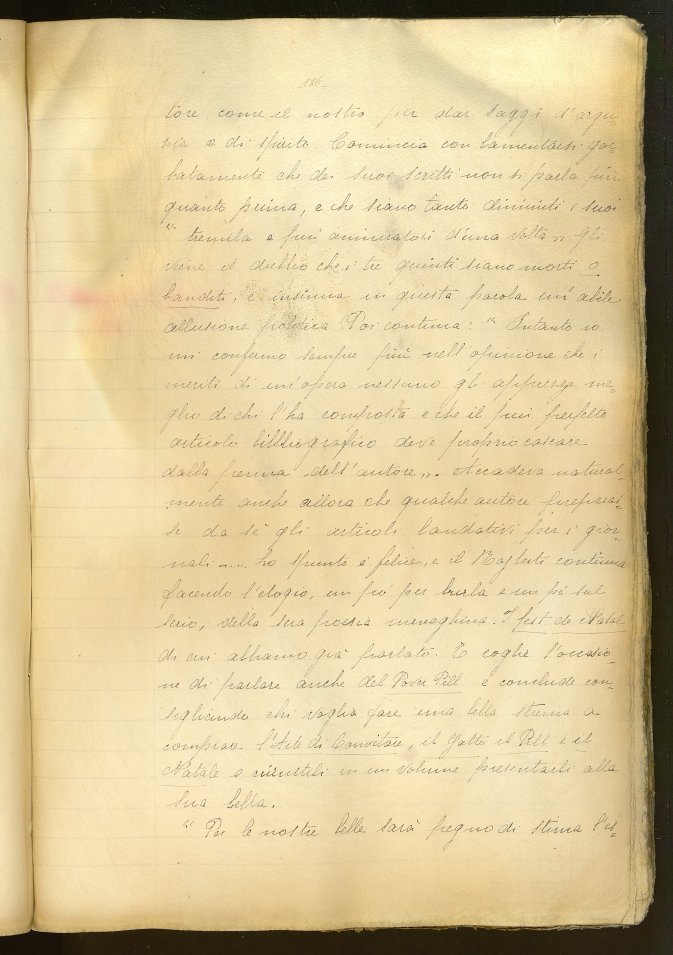 136-
tore come il nostro per dar saggi d'argu-
zia e di spirito. Comincia con lamentarsi gar-
batamente che dei suoi scritti non si parla più
quanto prima, e che siano tanto diminuiti i suoi
“ tremila e più ammiratori d'una volta „. Gli
viene il dubbio che i tre quinti siano morti o
banditi, e insinua in questa parola un'abile
allusione politica. Poi continua: “ Intanto io
mi confermo sempre più nell'opinione che i
meriti di un'opera nessuno gli apprezza me-
glio di chi l'ha composta e che il più perfetto
articolo bibliografico deve proprio cascare
dalla penna dell'autore „. Accadeva natural-
mente anche allora che qualche autore preparas-
se da sè gli articoli laudativi per i gior-
nali.... Lo spunto è felice, e il Rajberti continua
facendo l'elogio, un po' per burla e un po' sul
serio, della sua poesia meneghina. I fest de Natal
di cui abbiamo già parlato. E coglie l'occasio-
ne di parlare anche del Pover Pill e conclude con-
sigliando chi voglia fare una bella strenna a
comprare l'Arte di Convitare, il Gatto il Pill e il
Natale e riunitili in un volume presentarli alla
sua bella.
“ Per le nostre belle sarà pegno di stima l'es-